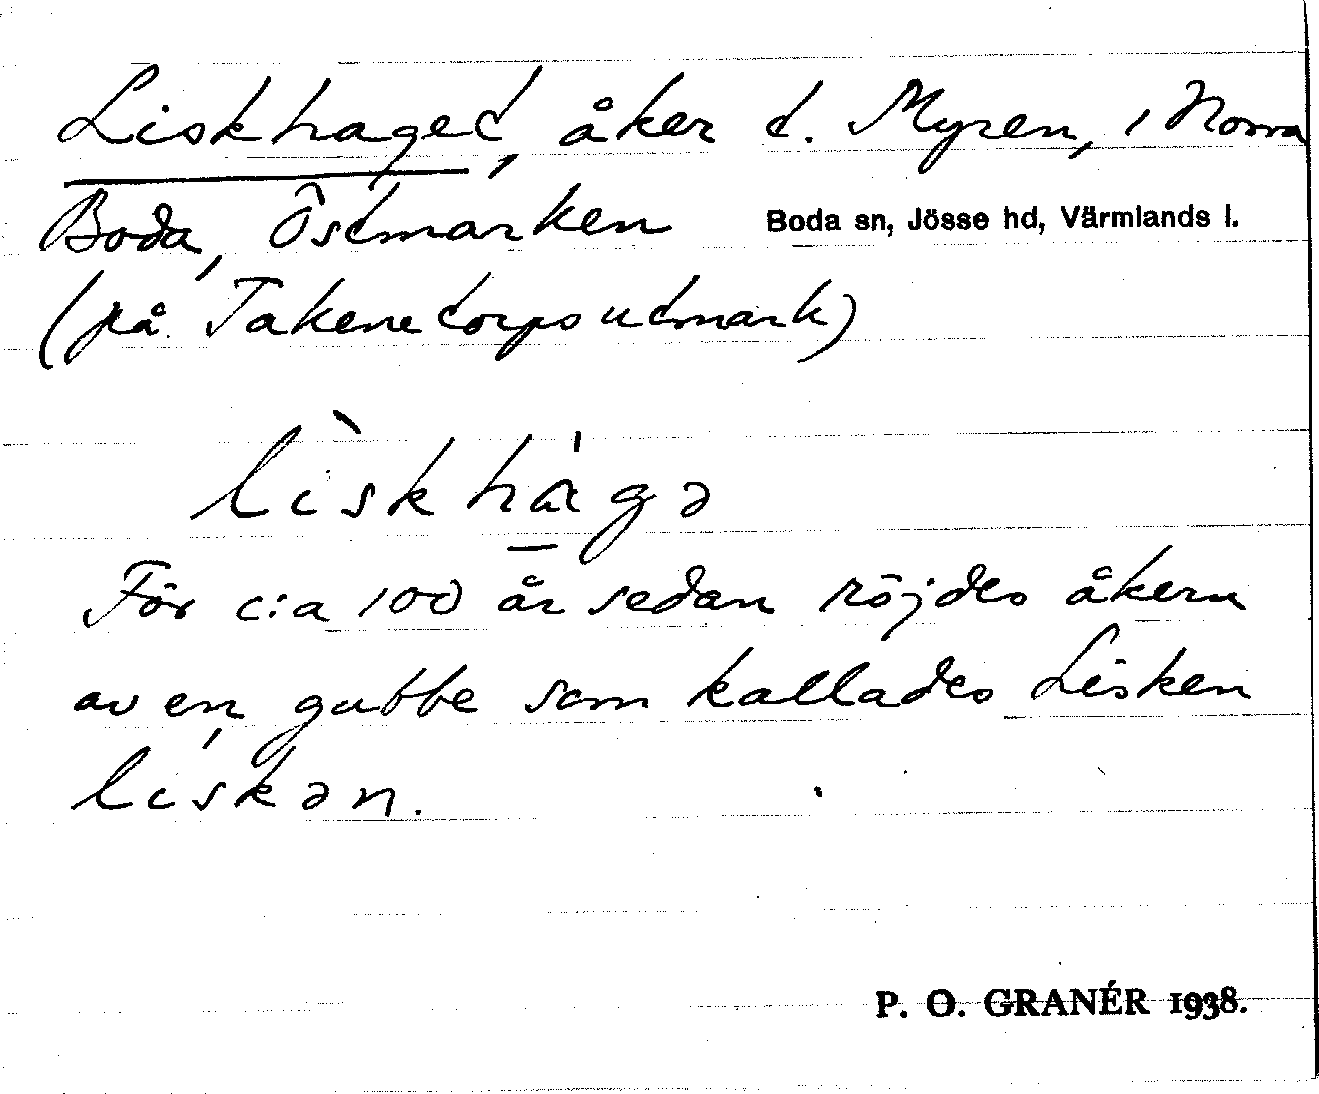 Liskhaget, åker t. Myren, i Norra
Boda, Östmarken Boda sn, Jösse hd, Värmlands l.
(på Takenetorps utmark)
lìskhá̱gə
För c:a 100 år sedan röjdes åkern
av en gubbe som kallades Lisken
lískən.
P. O. GRANÉR 1938.